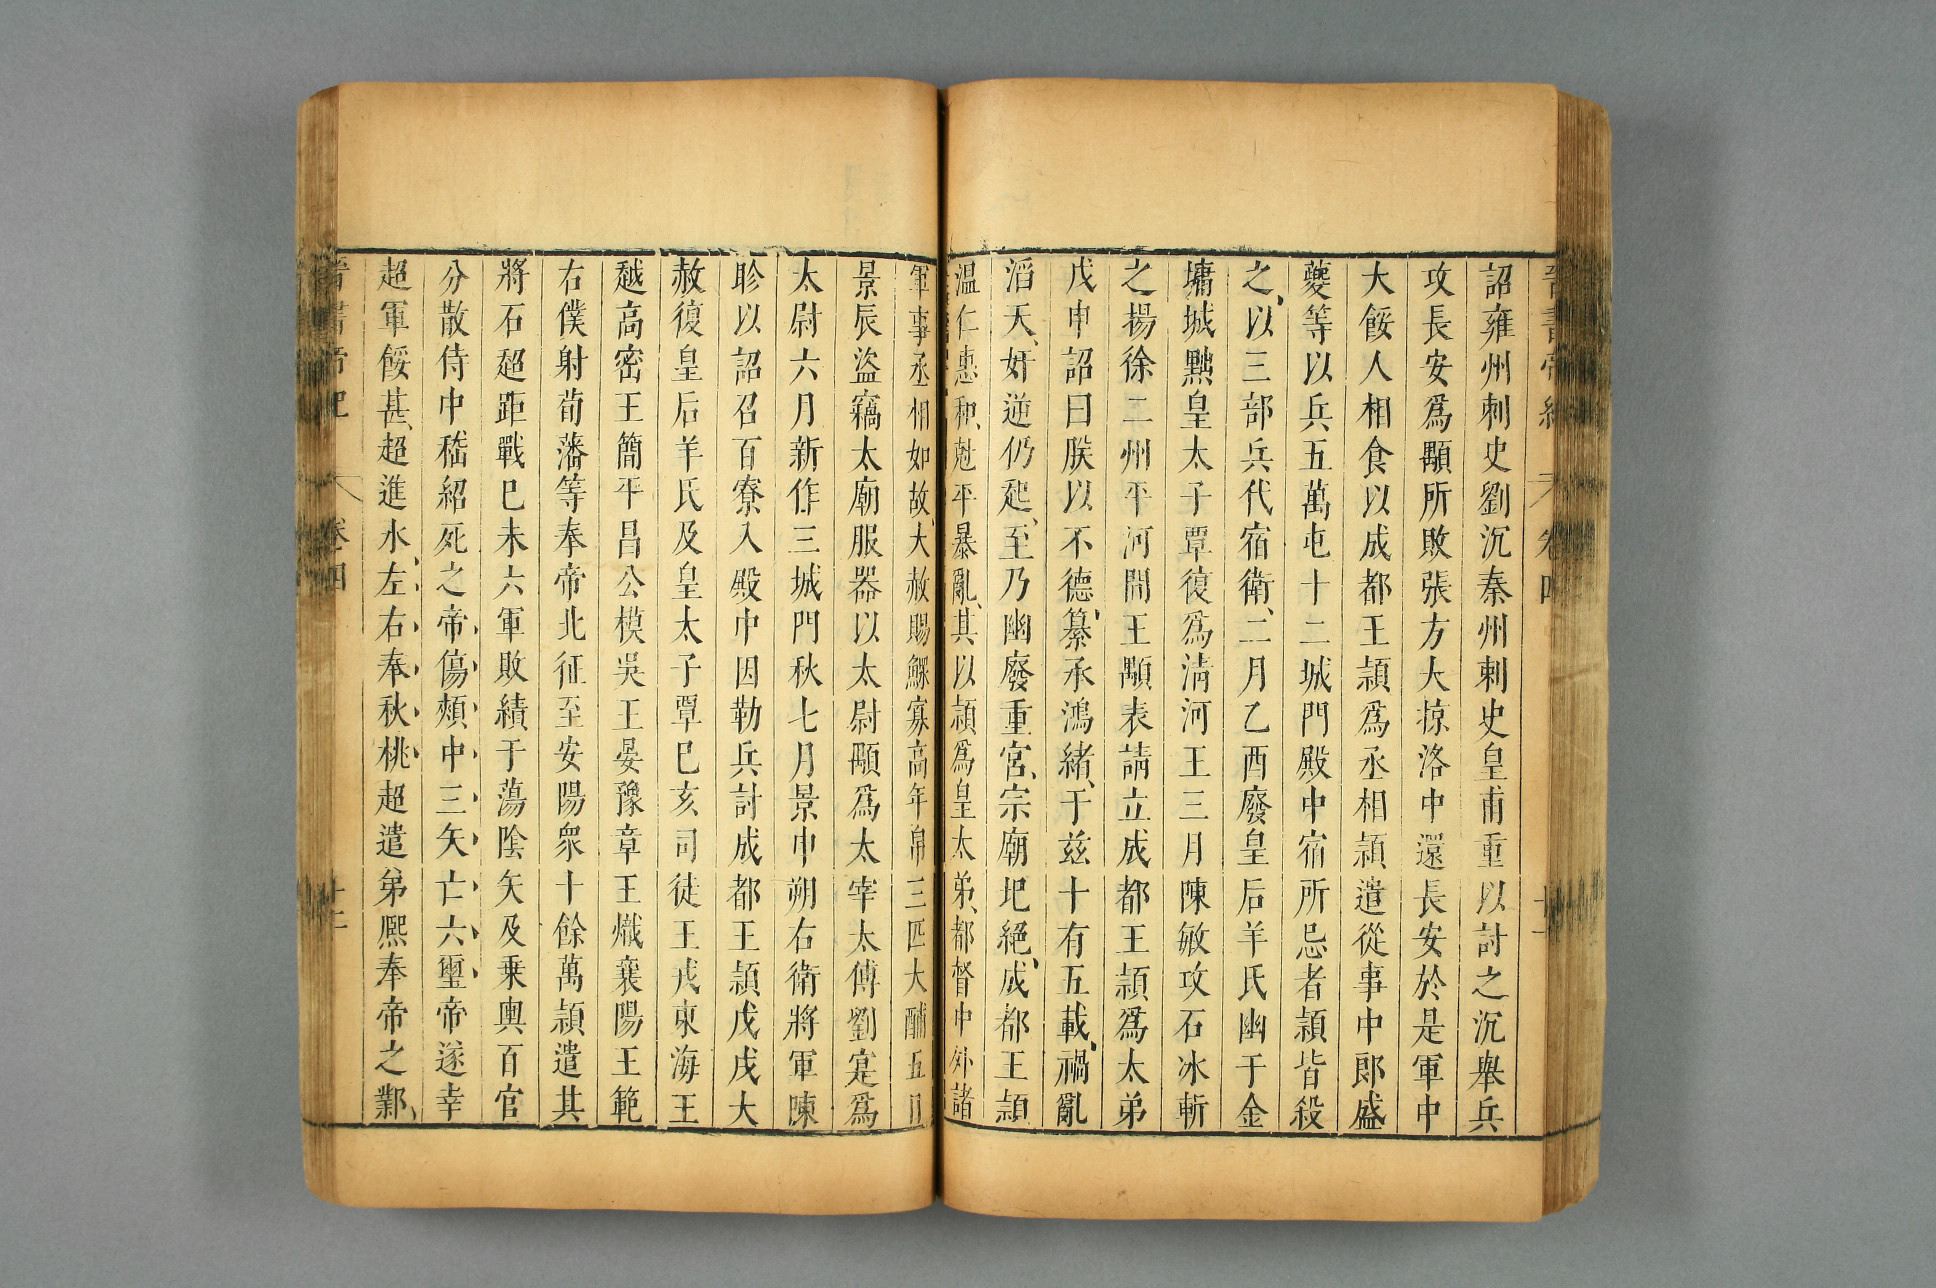 晉書帝紀 卷四 十一
詔雍州刺史劉沉秦州刺史皇甫重以討之沉舉兵
攻長安爲顒所敗張方大掠洛中還長安於是軍中
大餒人相食以成都王頴爲丞相頴遣從事中郎盛
夔等以兵五萬屯十二城門殿中宿所忌者頴皆殺
之以三部兵代宿衛二月乙酉廢皇后羊氏幽于金
墉城黜皇太子覃復爲淸河王三月陳敏攻石冰斬
之揚徐二州平河間王顒表請立成都王頴爲太弟
戊申詔曰朕以不德纂承鴻緒于兹十有五載禍亂
滔天奸逆仍起至乃幽廢重宮宗廟圯絕成都王頴
温仁惠和尅平暴亂其以頴爲皇太弟都督中外諸
軍事丞相如故大赦賜鰥寡高年帛三匹大酺五日
景辰盜竊太廟服器以太尉顒爲太宰太傅劉寔爲
太尉六月新作三城門秋七月景申朔右衛將軍陳
眕以詔召百寮入殿中因勒兵討成都王頴戊戌大
赦復皇后羊氏及皇太子覃巳亥司徒王戎東海王
越高密王簡平昌公模吳王晏豫章王熾襄陽王範
右僕射荀藩等奉帝北征至安陽衆十餘萬頴遣其
將石超距戰巳未六軍敗績于蕩陰矢及乗輿百官
分散侍中嵇紹死之帝傷頰中三矢亡六璽帝遂幸
超軍餒甚超進水左右奉秋桃超遣弟熙奉帝之鄴
晉書帝紀 卷四 十一